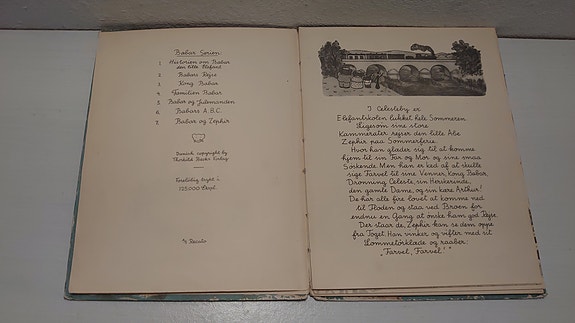 Babar Serien:
1. Historien om Babar
den lille Elefant
2. Babars Rejse
3. Kong Babar
4. Familien Babar
5. Babar og Julemanden
6. Babars A.B.C.
7. Babar og Zephir
Danish copyright by
Thorkild Becks Forlag
Foreløbig trykt i
125.000 Expl.
I Celesteby er
Elefantskolen lukket hele Sommeren.
Ligesom sine store
Kammerater rejser den lille Abe
Zephir paa Sommerferie.
Hvor han glæder sig til at komme
hjem til sin Far og Mor og sine smaa
Søskende. Men han er ked af at skulle
sige Farvel til sine Venner, Kong Babar,
Dronning Celeste, sin Herskerinde,
den gamle Dame, og sin kære Arthur!
De har alle fire lovet at komme ned
til Floden og staa ved Broen for
endnu en Gang at ønske ham god Rejse.
Der staar de, Zephir kan se dem oppe
fra Toget. Han vinker og vifter med sit
Lommetørklæde og raaber:
„Farvel, Farvel."